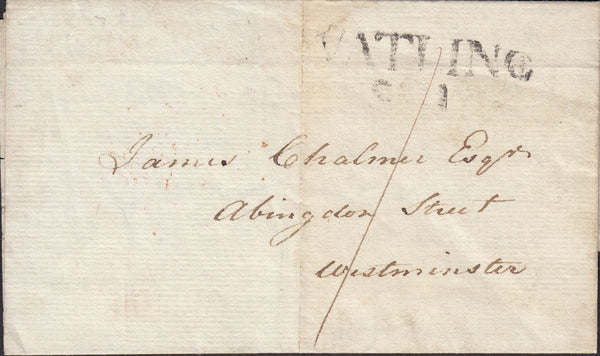 WATLING
James Chalmer Esqr
Abingdon Street
Westminster